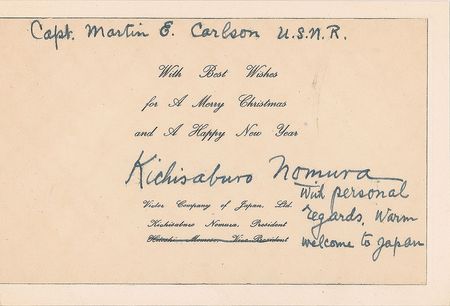 Capt. Martin E. Carlson U.S.N.R.
With Best Wishes
for A Merry Christmas
and A Happy New Year
Kichisaburo Nomura
With personal
regards. Warm
welcome to Japan
Victor Company of Japan, Ltd.
Kichisaburo Nomura, President
Hitoshi Momose, Vice-President